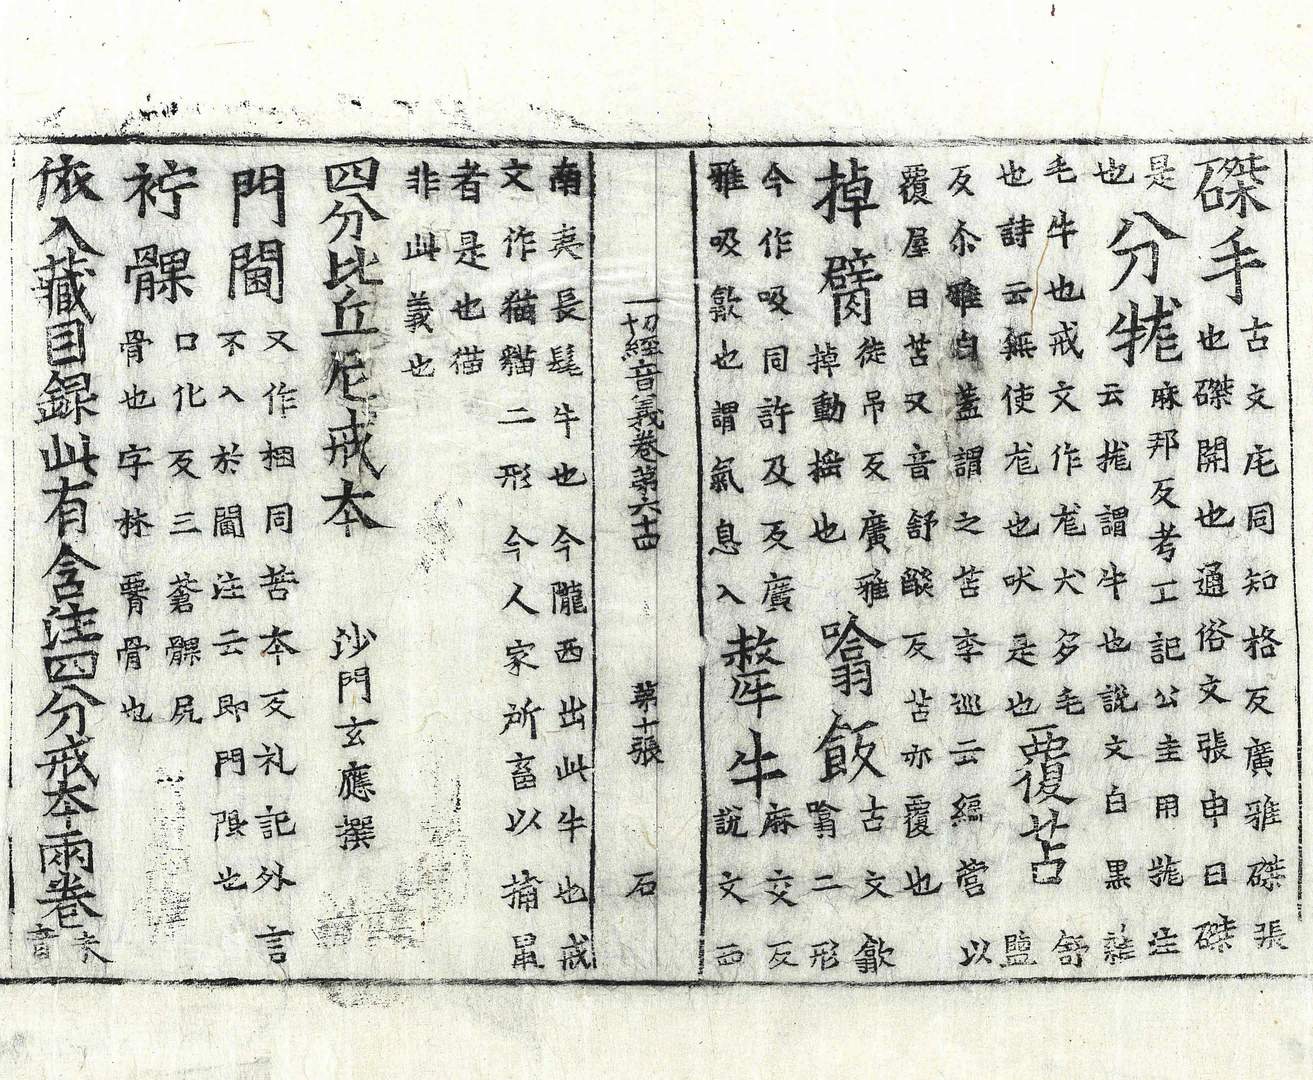 磔手
古文庑同知格反廣雅磔張
也磔開也通俗文張申曰磔
是
分㹊
麻邦反考工記公圭用㹊注
也
云㹊謂牛也說文白黒雜
毛牛也戒文作尨犬多毛
也詩云無使尨也吠是也
覆苫
舒
鹽
反尒雅白蓋謂之苫李巡云編菅以
覆屋曰苫又音舒鹽反苫亦覆也
掉臂
徒吊反廣雅
掉動揺也
噏飯
古文歙
噏二形
今作吸同許及反廣
雅吸歙也謂氣息入
犛牛
麻交反
說文西
南夷長髦牛也今隴西出此牛也戒
文作猫貓二形今人家所畜以捕鼠
者是也猫
非此義也
一切經音義卷第六十四
第十張
石
四分比丘尼戒本
沙門玄應撰
門閫
又作梱同苦本反礼記外言
不入於閫注云即門限也
袕髁
口化反三蒼髁尻
骨也字林臀骨也
依入藏目録此有含注四分戒本兩卷
未
音